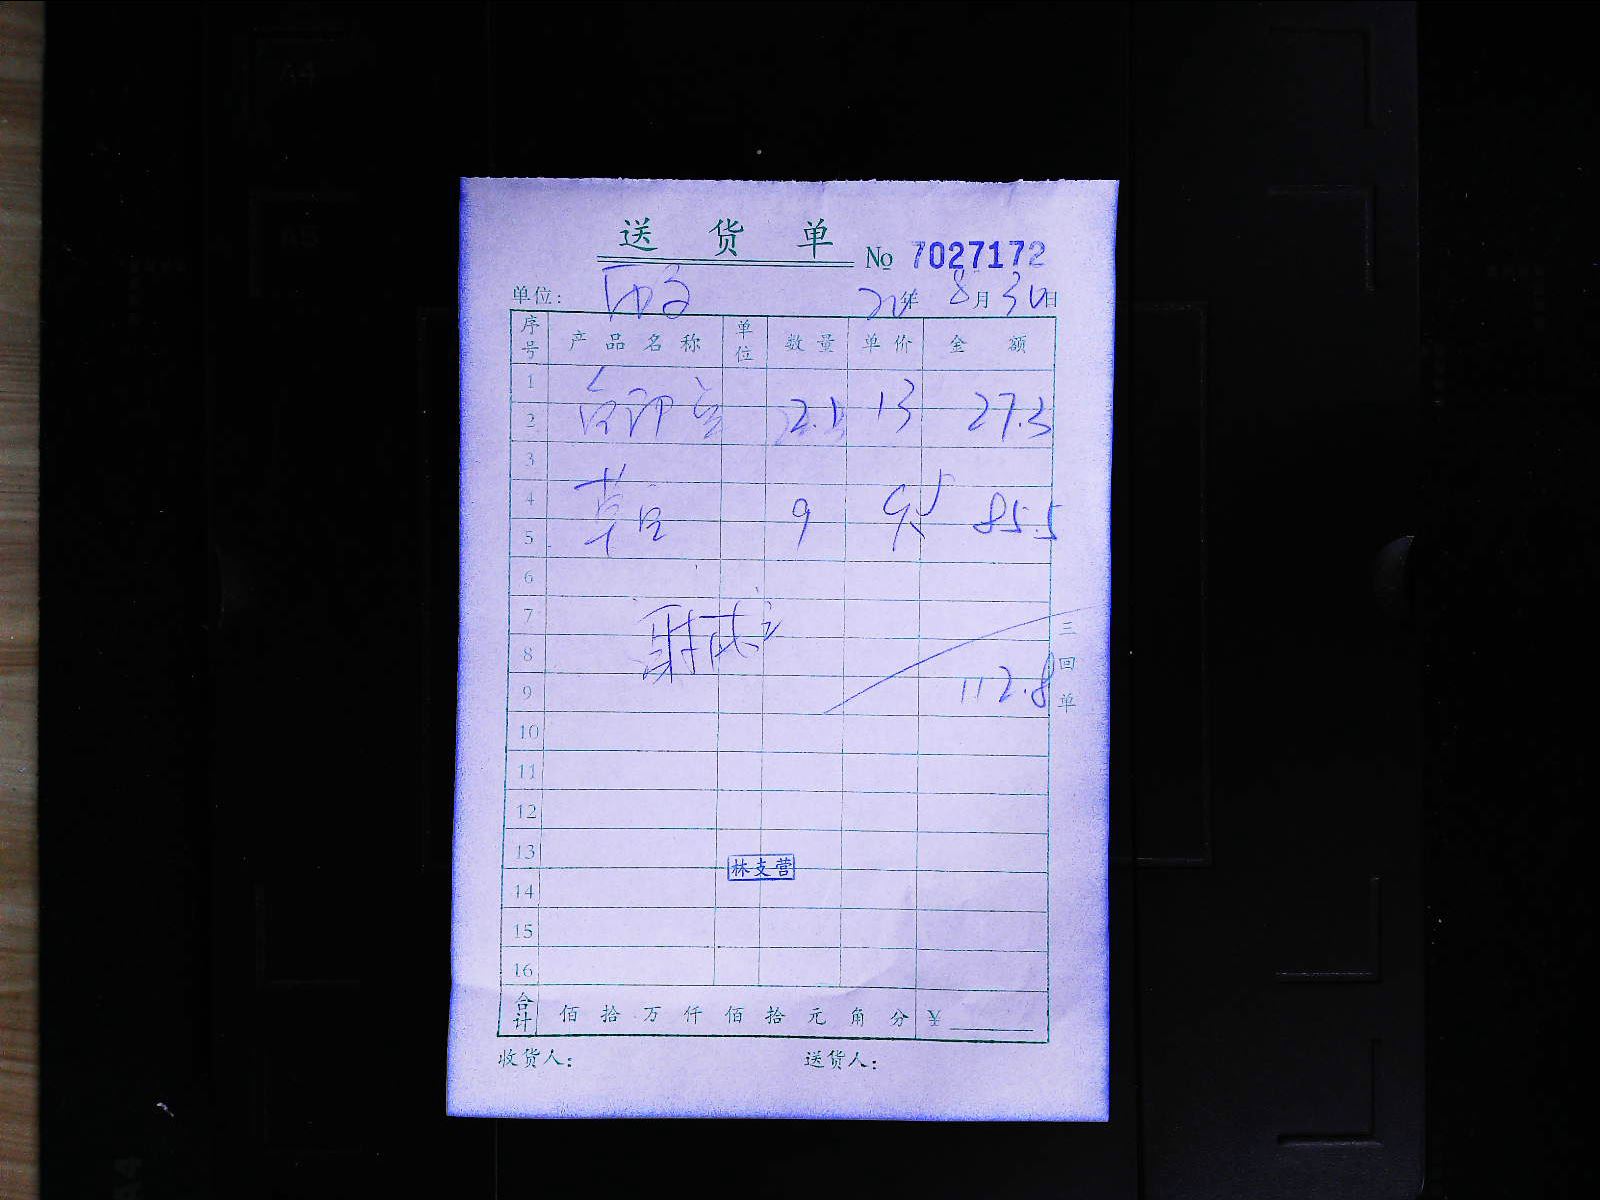 送货单 No 7027172
单位: 年 8月30日
序号 产品名称 单位 数量 单价 金额
1
2 2.1 13 27.3
3
4
5 9 9.5 85.5
6
7
8
9 112.8
10
11
12
13
林支营
14
15
16
合计 佰 拾 万 仟 佰 拾 元 角 分 ¥
收货人: 送货人:
三回单